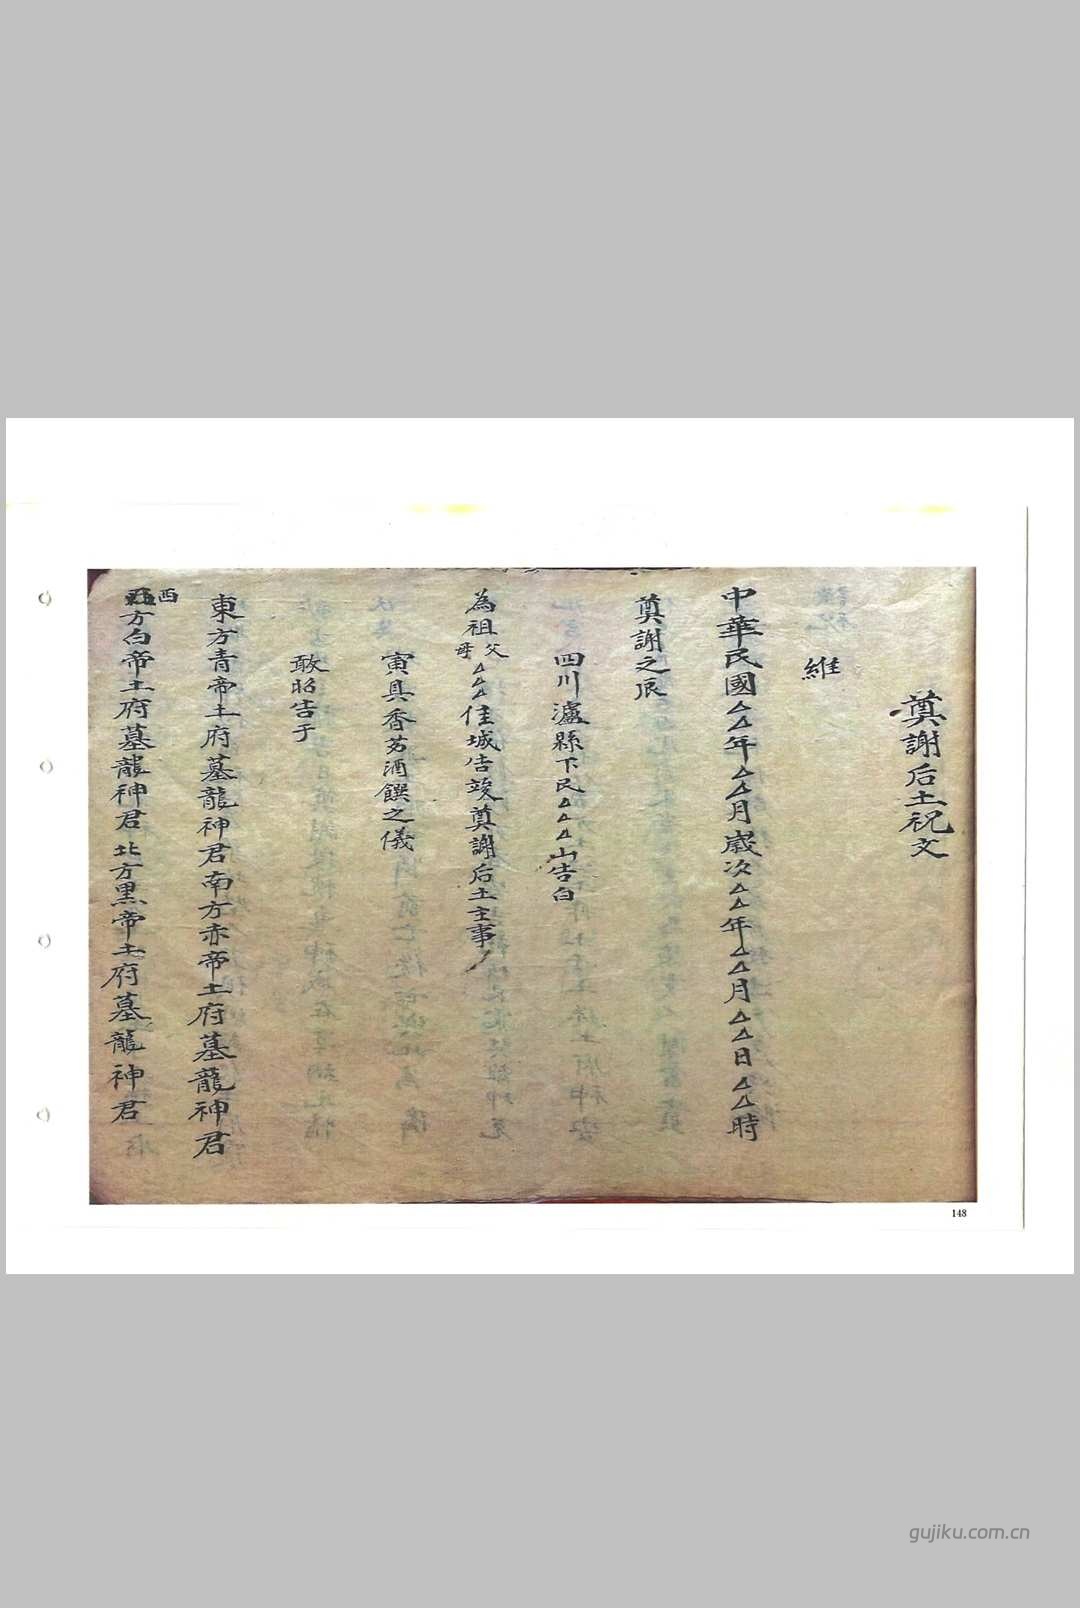 奠謝后土祝文
維
中華民國△△年△△月歲次△△年△△月△△日△△時
奠謝之辰
四川瀘縣下民△△△山告白
為祖父母△△△佳城告竣奠謝后土主事
寅具香茗酒饌之儀
敢昭告于
東方青帝土府墓龍神君南方赤帝土府墓龍神君
西方白帝土府墓龍神君北方黑帝土府墓龍神君
148
gujiku.com.cn